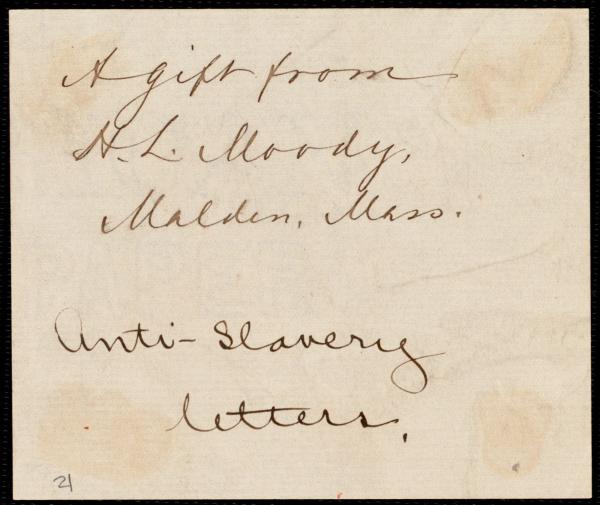 A gift from
H. L. Moody,
Malden, Mass.
Anti-Slavery
letters.
21